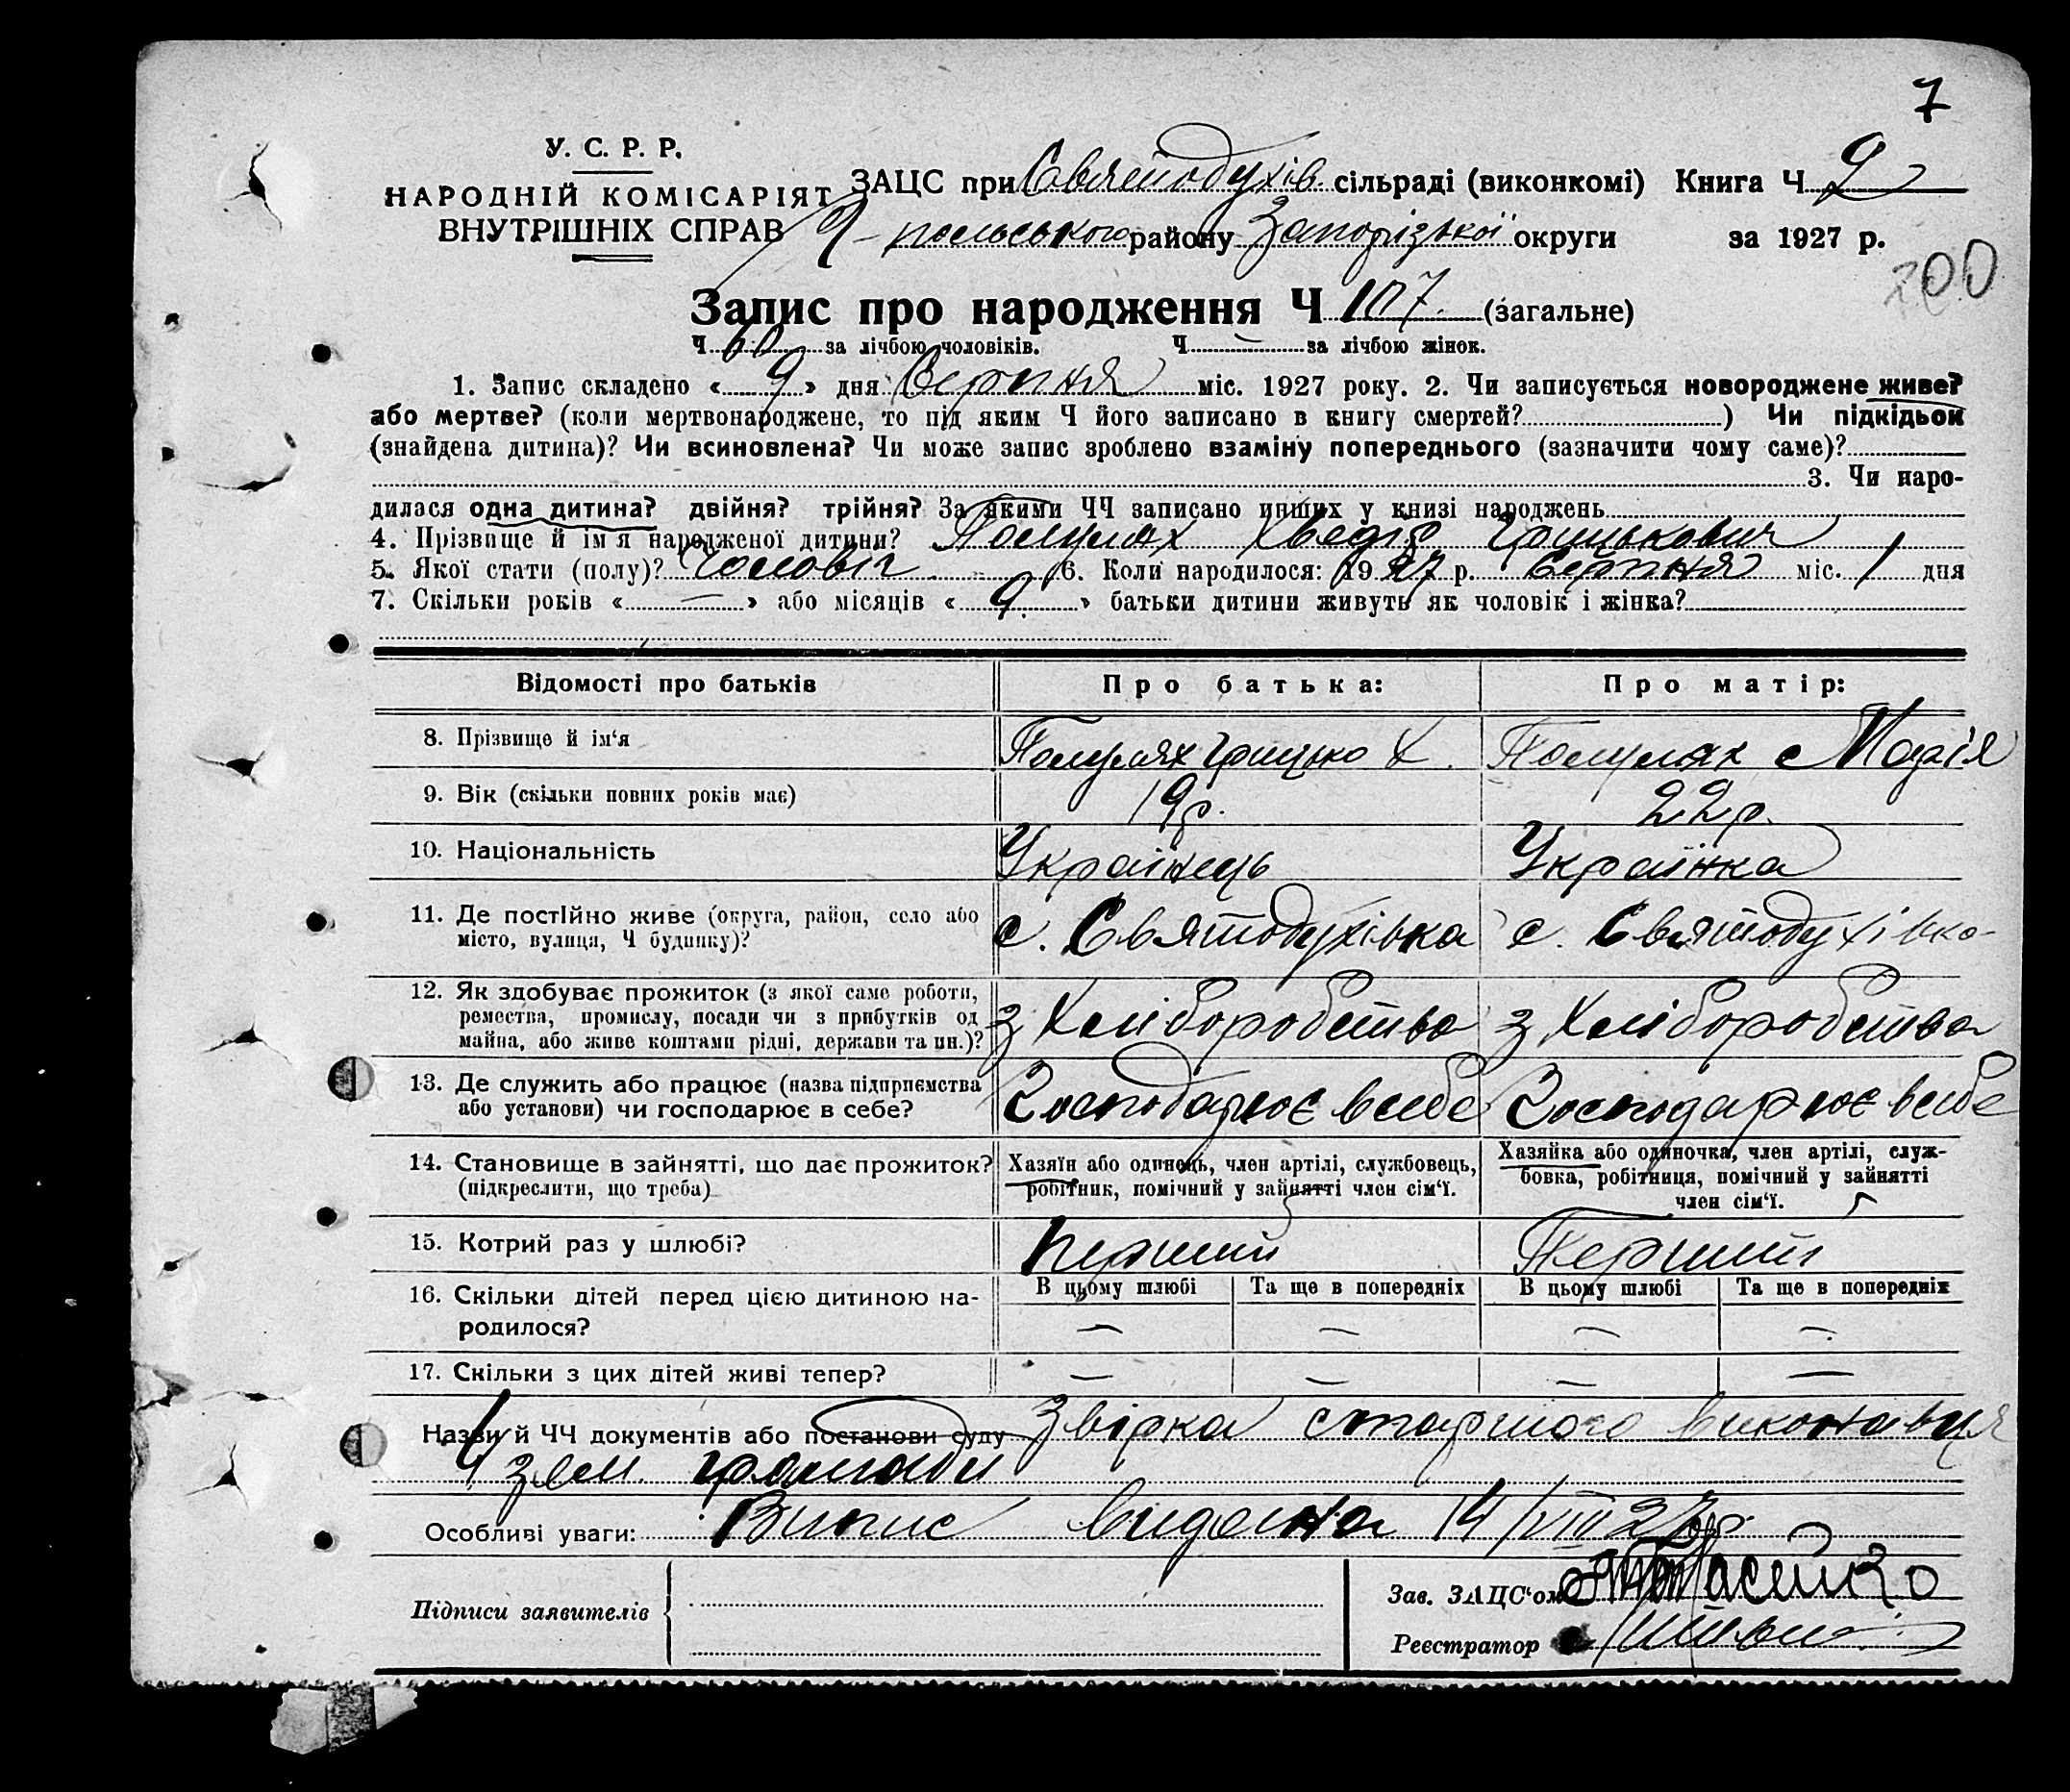 7
У. С. Р. Р.
НАРОДНІЙ КОМІСАРІЯТ
ВНУТРІШНІХ СПРАВ
ЗАЦС при Святодухів сільраді (виконкомі) Книга Ч 2
пільського району Запорізької округи за 1927 р.
200
Запис про народження Ч 107 (загальне)
Ч 60 за лічбою чоловіків. Ч — за лічбою жінок.
1. Запис складено « 9 » дня Серпня міс. 1927 року. 2. Чи записується новороджене живе?
або мертве? (коли мертвонароджене, то під яким Ч його записано в книгу смертей? ) Чи підкідьок
(знайдена дитина)? Чи всиновлена? Чи може запис зроблено взаміну попереднього (зазначити чому саме)?
3. Чи наро-
дилася одна дитина? двійня? трійня? За якими ЧЧ записано инших у книзі народжень
4. Прізвище й ім'я народженої дитини? Полулях Хведір Грицькович
5. Якої стати (полу)? Чоловіч 6. Коли народилося: 1927 р. Серпня міс. 1 дня
7. Скільки років « — » або місяців « 9 » батьки дитини живуть як чоловік і жінка?
Відомості про батьків Про батька: Про матір:
8. Прізвище й ім'я Полулях Грицько Х. Полулях Марія
9. Вік (скільки повних років має) 19р. 22р.
10. Національність Українець Українка
11. Де постійно живе (округа, район, село або
місто, вулиця, Ч будинку)? с. Святодухівка с. Святодухівка
12. Як здобуває прожиток (з якої саме роботи,
ремества, промислу, посади чи з прибутків од
майна, або живе коштами рідні, держави та ин.)? з Хліборобства з Хліборобства
13. Де служить або працює (назва підприємства
або установи) чи господарює в себе? Господарює в себе Господарює в себе
14. Становище в зайнятті, що дає прожиток?
(підкреслити, що треба)
Хазяїн або одинець, член артілі, службовець,
робітник, помічний у зайнятті член сім'ї.
Хазяйка або одиночка, член артілі, служ-
бовка, робітниця, помічний у зайнятті
член сім'ї.
15. Котрий раз у шлюбі? Перший Перший
16. Скільки дітей перед цією дитиною на-
родилося?
В цьому шлюбі Та ще в попередніх В цьому шлюбі Та ще в попередніх
— — — —
17. Скільки з цих дітей живі тепер? — — — —
Назви й ЧЧ документів або постанови суду Звірка старшого виконавця
зем. громади
Особливі уваги: Випис видана 14/VIII 27р.
Підписи заявителів
Зав. ЗАЦС'ом
Реєстратор